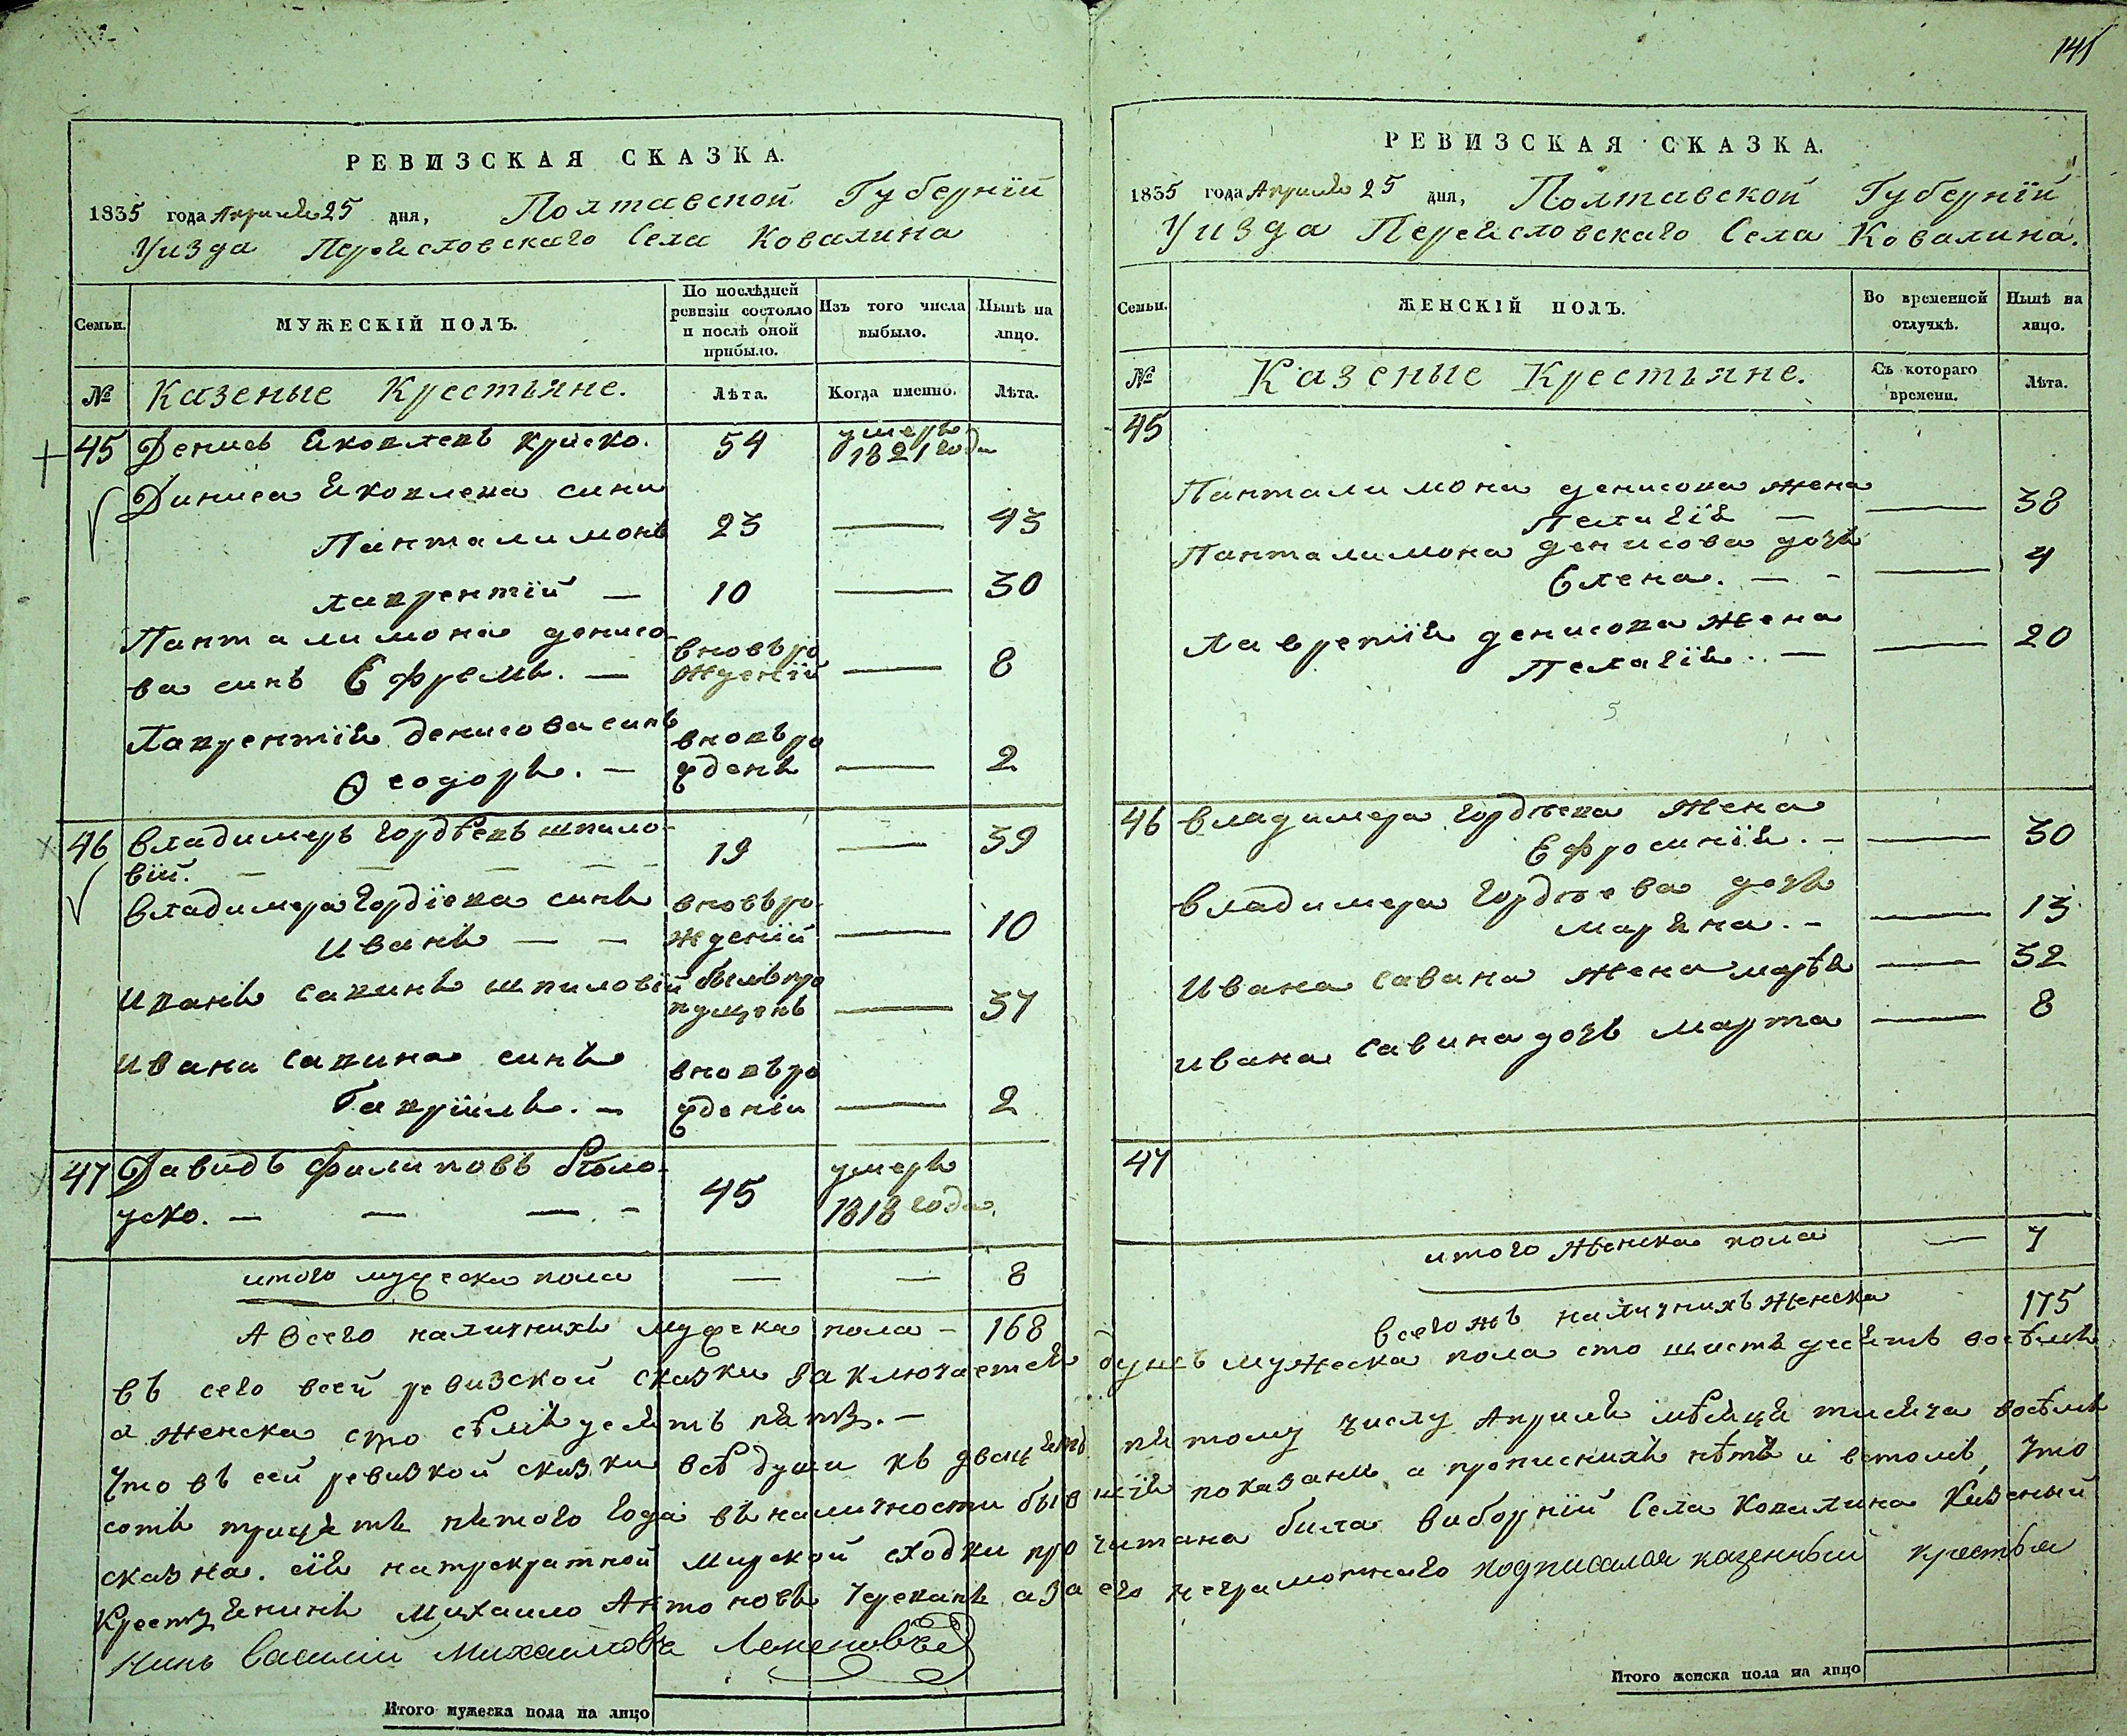 РЕВИЗСКАЯ СКАЗКА.
1835 года Априля 25 дня, Полтавской Губерніи
Уизда Переясловскаго Села Ковалина
Семьи.
МУЖЕСКІЙ ПОЛЪ.
По послѣдней
ревизіи состояло
и послѣ оной
прибыло.
Изъ того числа
выбыло.
Нынѣ на
лицо.
№
Казеные Крестьяне.
Лѣта.
Когда именно.
Лѣта.
45 Денисъ Яковлевъ 54 умеръ
1821 года
Дениса Яковлева сини
Панталимонъ 23 — 43
лаврентій — 10 — 30
Панталимона денисо- вновъ ро
ва синъ Ефремъ. — жденій — 8
Лаврентія денисова синъ вновъ ро
Ѳеодоръ. — жденъ — 2
46 Владимеръ Гордѣевъ шпило-
вій. — — — — 19 — 39
Владимера Гордіева синъ вновъ ро-
Иванъ — — жденій — 10
Иванъ савинъ шпиловій былъ про
пущенъ — 37
Ивана савина синъ вновъ ро
Гавріилъ. — жденіи — 2
47 Давидъ Филиповъ бѣло- умеръ
уско. — — — - 45 1818 года.
итого мужеска пола — — 8
А всего наличнихъ мужеска пола — 168
141
РЕВИЗСКАЯ СКАЗКА.
1835 года Априля 25 дня, Полтавской Губерніи
Уизда Переясловскаго Села Ковалина.
Семьи.
ЖЕНСКІЙ ПОЛЪ.
Во временной
отлучкѣ.
Нынѣ на
лицо.
№
Казеные Крестьяне.
Съ котораго
времени.
Лѣта.
45
Панталимона денисова жена
Пелагія — — 38
Панталимона денисова дочь
Елена. — - — 4
Лаврентія денисова жена
Пелагія. — — 20
5
46 Владимера Гордѣева жена
Ефросинія. — — 30
Владимера Гордѣева дочь
марина. — — 13
Ивана савина жена — 32
Ивана савина дочь марта — 8
47
итого женска пола — 7
всегожъ наличнихъ женска 175
въ сего всей ревизской сказки заключается душъ мужеска пола сто шистъ десятъ восѣмъ
а женска сто сѣмъ десятъ пять. —
Что въ сей ревизкой сказки всѣ души къ двацять пятому числу Априля мѣсяця тисяча восѣмъ
сотъ трицять пятого года въ наличности бывшія показани, а прописнихъ нѣтъ и втомъ, что
сказка. сія на трекратной мирской сходки прочитана била виборній Села Ковалина Казеный
Крестянинъ Михаило Антоновъ а за его неграмотнаго подписался казенный крестья
нинъ Василій Михайловъ
Итого мужеска пола на лицо
Итого женска пола на лицо